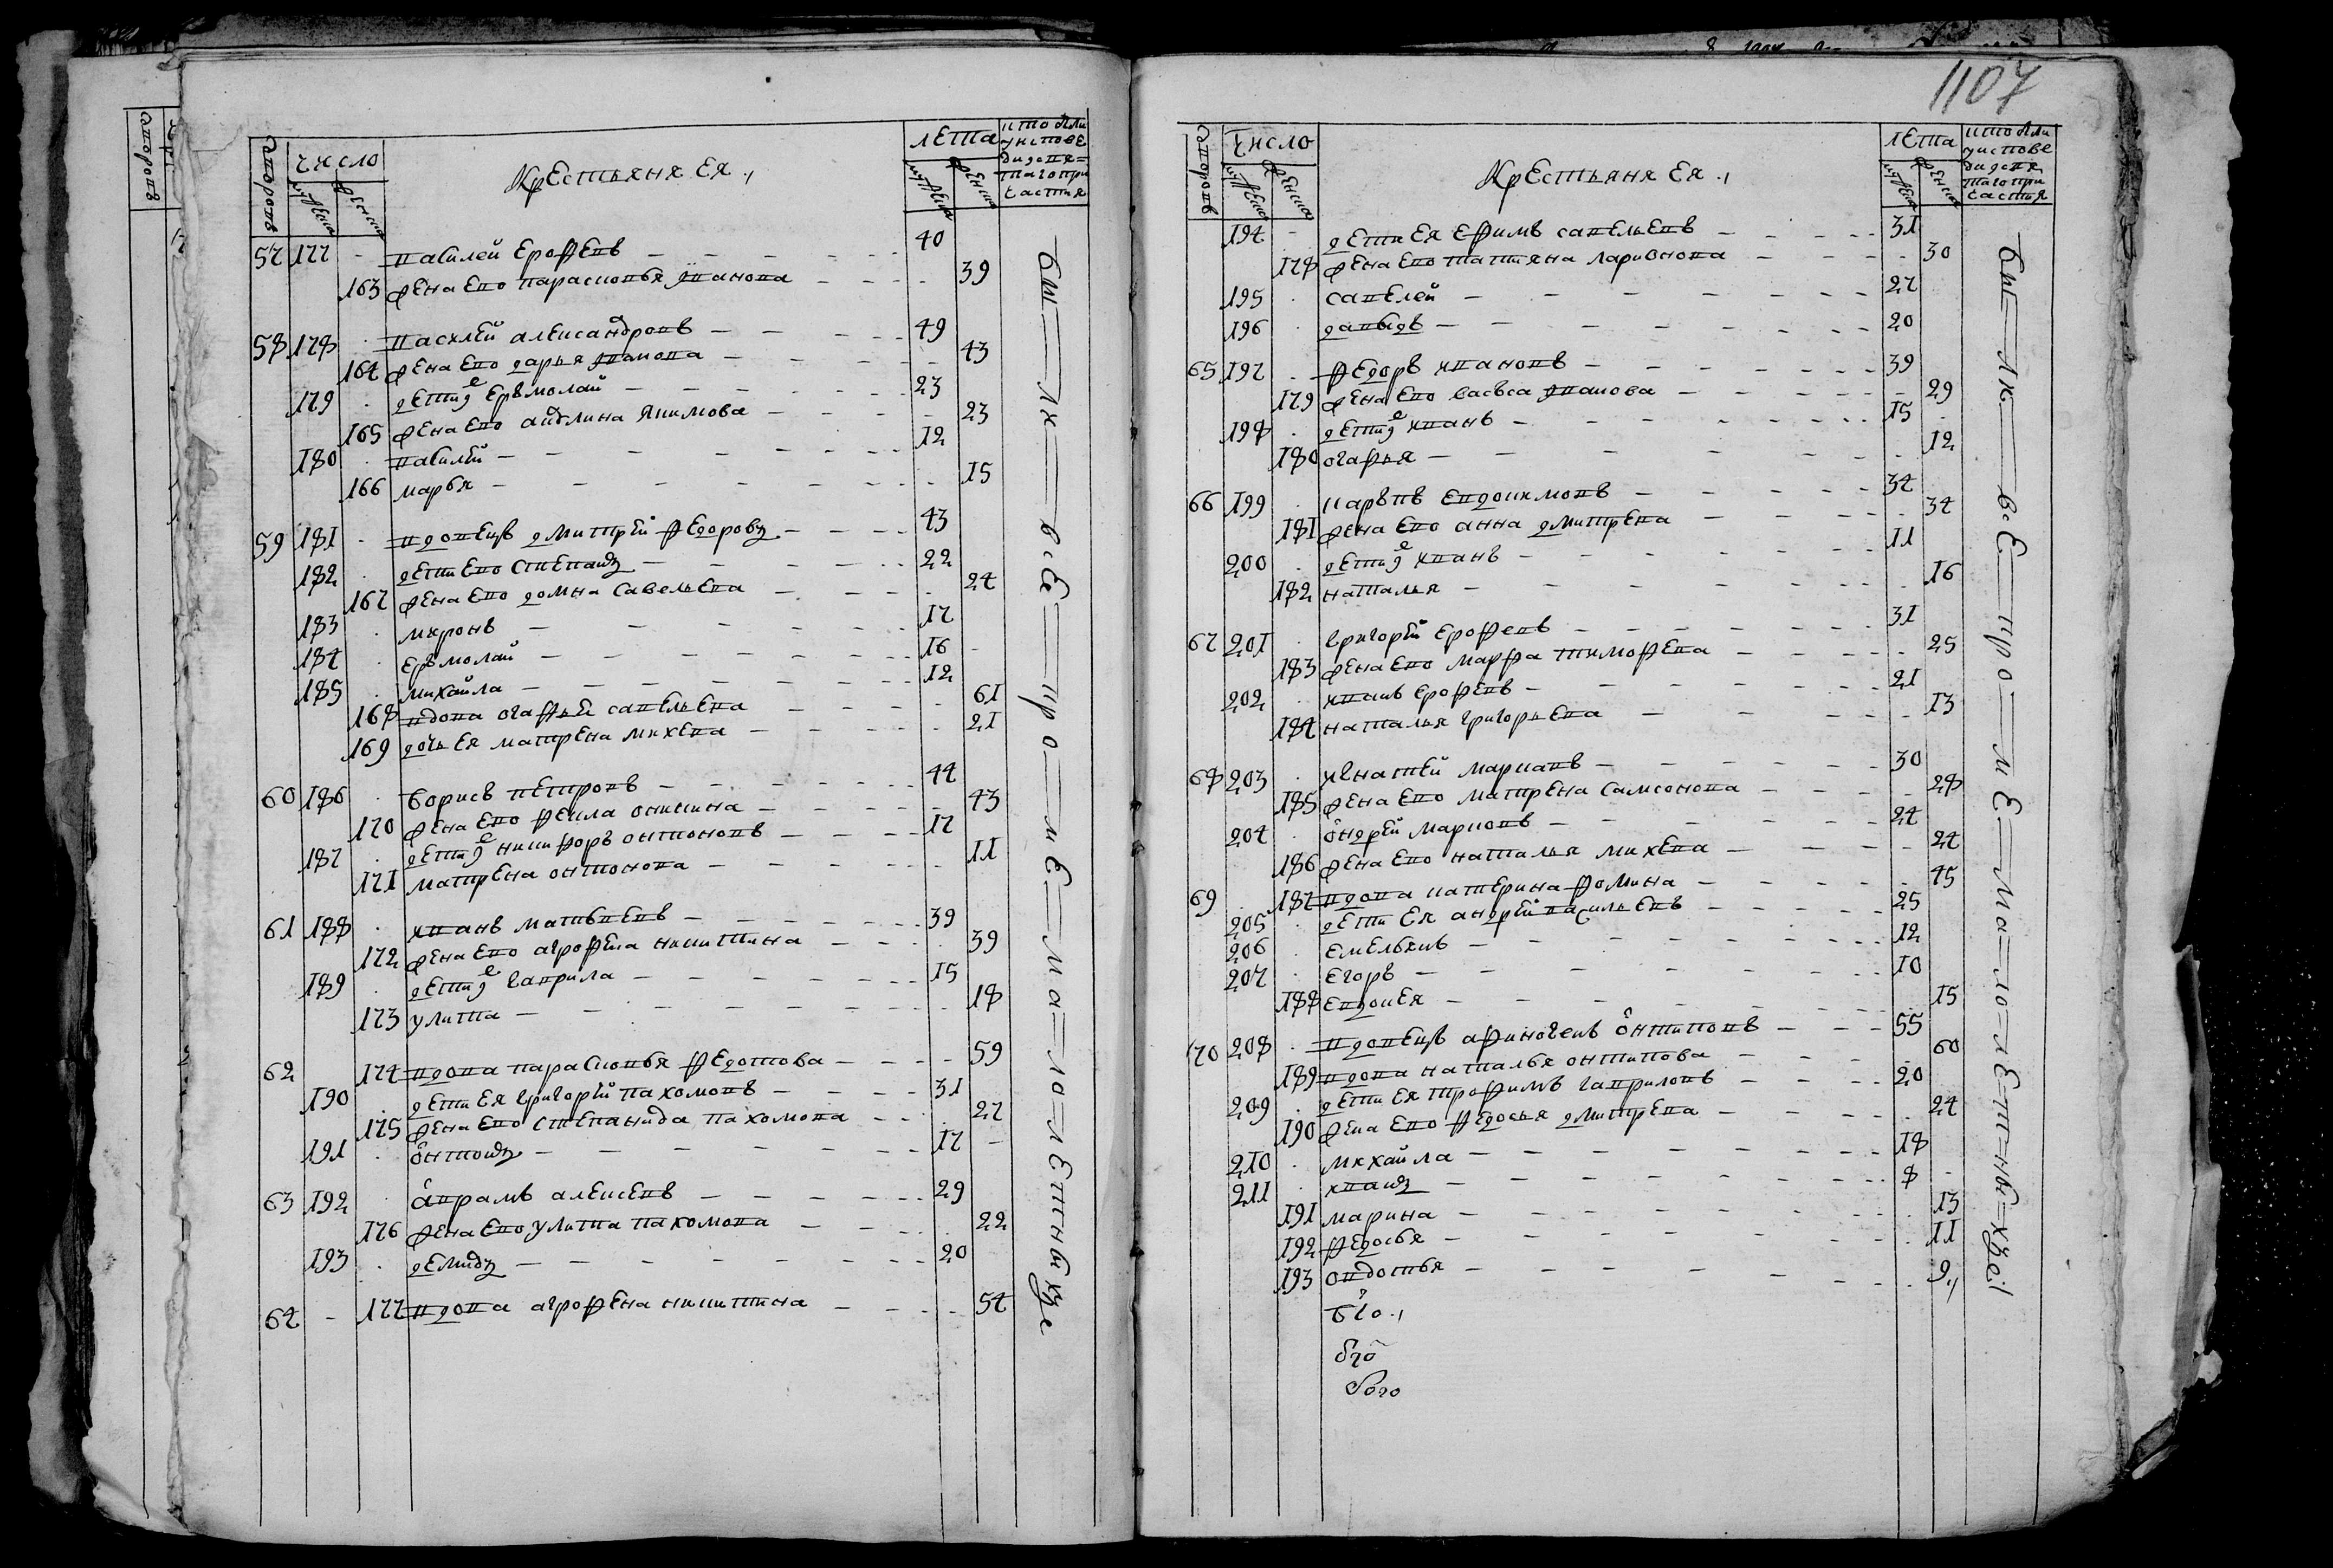 дворовъ
число
мужеска
женска
крестьяня ея
лета
мужеска
женска
кто были у исповеди и святаго причастия
57 177 василей ерофеевъ 40
163 жена ево парасковья иванова 39
58 178 василей александровъ 49
164 жена ево дарья иванова 43
179 дети ево ермолай 23
165 жена ево акулина якимова 23
180 василей 12
166 марья 15
59 181 вдовецъ дмитрей федоровъ 43
182 дети ево степанъ 22
167 жена ево домна савельева 24
183 миронъ 17
184 ерьмолай 16
185 михайла 12
168 вдова огафья савельева 61
169 дочь ея матрена михева 21
60 186 борисъ петровъ 44
170 жена ево фекла оникина 43
187 дети ево никифоръ онтоновъ 17
171 матрена онтонова 11
61 188 иванъ матвеевъ 39
172 жена ево агрофена никитина 39
189 дети ево гаврила 15
173 улита 18
62 174 вдова парасковья федотова 59
190 дети ея григорей пахомовъ 31
175 жена ево степанида пахомова 27
191 онтонъ 17
63 192 аврамъ алексеевъ 29
176 жена ево улита пахомова 22
193 демидъ 20
64 177 вдова агрофена никитина 54
были все кроме малолетныхъ
1107
дворовъ
число
мужеска
женска
крестьяня ея
лета
мужеска
женска
кто были у исповеди и святаго причастия
194 дети ея ефимъ савельевъ 31
178 жена ево татияна ларивонова 30
195 савелей 27
196 давыдъ 20
65 197 федоръ ивановъ 39
179 жена ево васса иванова 29
198 дети ево иванъ 15
180 огафья 12
66 199 карпъ евдокимовъ 34
181 жена ево анна дмитрева 34
200 дети ево иванъ 11
182 наталья 16
67 201 григорей ерофеевъ 31
183 жена ево марфа тимофева 25
202 иванъ ерофеевъ 21
184 наталья григорьева 13
68 203 игнатей марковъ 30
185 жена ево матрена самсонова 28
204 ондрей марковъ 24
186 жена ево наталья михева 24
69 187 вдова катерина фомина 45
205 дети ея андрей васильевъ 25
206 емельянъ 12
207 егоръ 10
188 евдокея 15
70 208 вдовецъ афиногенъ онтиповъ 55
189 вдова наталья онтипова 60
209 дети ея трофимъ гавриловъ 20
190 жена ево федосья дмитрева 24
210 михайла 18
211 иванъ 8
191 марина 13
192 федосья 11
193 овдотья 9
были все кроме малолетныхъ